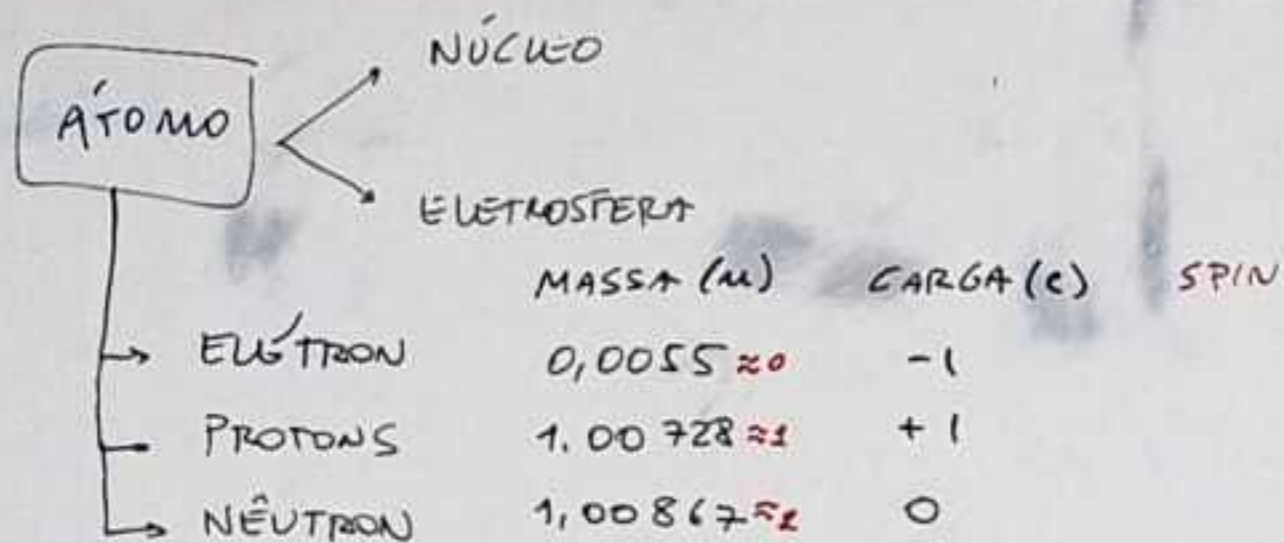 NÚCLEO
ÁTOMO
ELETROSFERA
MASSA (u) CARGA (e) SPIN
ELÉTRON 0,0055 ≈0 -1
PROTONS 1.00728 ≈1 +1
NÊUTRON 1,00867 ≈1 0